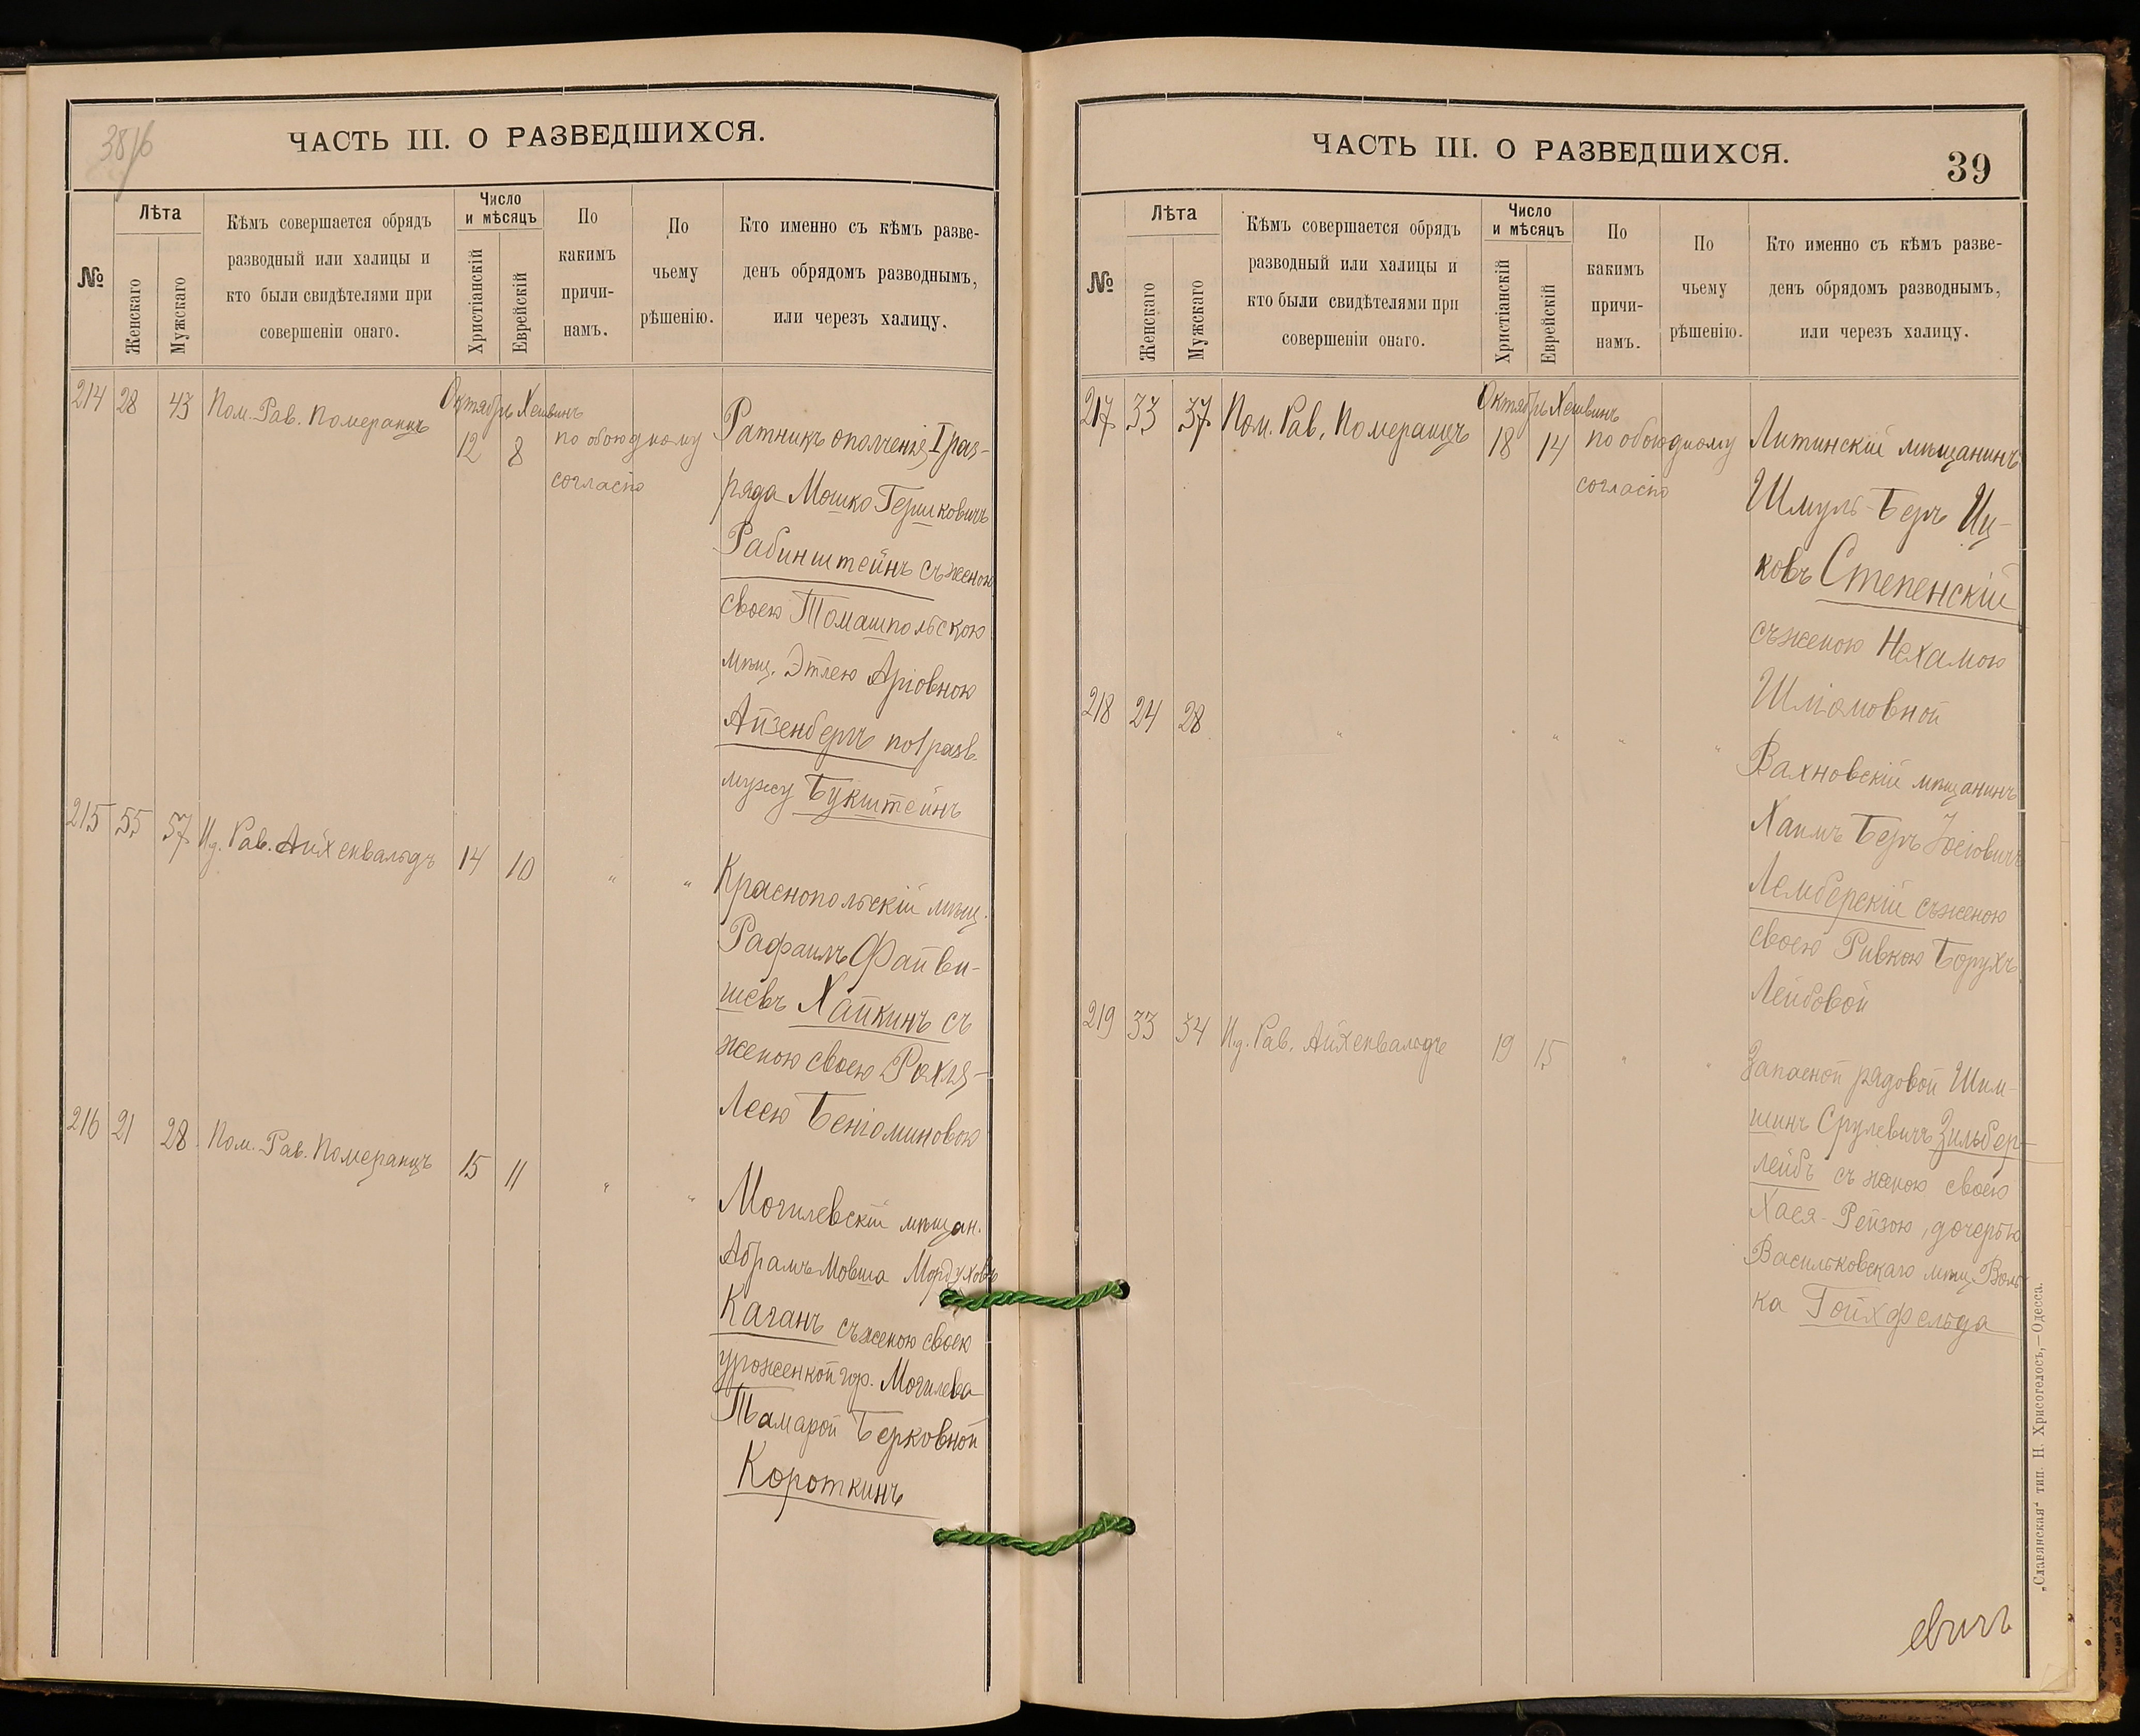 38/б
ЧАСТЬ III. О РАЗВЕДШИХСЯ.
№
Лѣта
Женскаго
Мужскаго
Кѣмъ совершается обрядъ
разводный или халицы и
кто были свидѣтелями при
совершеніи онаго.
Число
и мѣсяцъ
Христіанскій
Еврейскій
По
какимъ
причи-
намъ.
По
чьему
рѣшенію.
Кто именно съ кѣмъ разве-
денъ обрядомъ разводнымъ,
или черезъ халицу.
214 28 43 Пом. Рав. Померанцъ Октябрь Хешвинъ
12 8 по обоюдному
согласію
Ратникъ ополченія I раз-
ряда Мошко Гершковичъ
Рабинштейнъ съ женою
своею Томашпольскою
мѣщ. Этлею Аріовною
Айзенбергъ по I разв.
мужу Букштейнъ
215 55 57 И.д. Рав. Айхенвальдъ 14 10 " "
Краснопольскій мѣщ.
Рафаилъ Файви-
шевъ Хайкинъ съ
женою своею Рохля-
Леею Беніоминовою
216 21 28 Пом. Рав. Померанцъ 15 11 " "
Могилевскій мѣщан.
Абрамъ Мовша Мордуховъ
Каганъ съ женою своею
уроженкой гор. Могилева
Тамарой Берковной
Короткинъ
ЧАСТЬ III. О РАЗВЕДШИХСЯ.
39
№
Лѣта
Женскаго
Мужскаго
Кѣмъ совершается обрядъ
разводный или халицы и
кто были свидѣтелями при
совершеніи онаго.
Число
и мѣсяцъ
Христіанскій
Еврейскій
По
какимъ
причи-
намъ.
По
чьему
рѣшенію.
Кто именно съ кѣмъ разве-
денъ обрядомъ разводнымъ,
или черезъ халицу.
217 33 37 Пом. Рав. Померанцъ Октябрь Хешвинъ
18 14 по обоюдному
согласію
Литинскій мѣщанинъ
Шмуль-Беръ Иц-
ковъ Степенскій
съ женою Нехамою
Шліомовной
218 24 28 " " " " "
Вахновскій мѣщанинъ
Хаимъ Беръ Іосіовичъ
Лемберскій съ женою
своею Ривкою Борухъ
Лейбовой
219 33 34 И.д. Рав. Айхенвальдъ 19 15 " "
Запасной рядовой Шим-
шинъ Срулевичъ Зильбер-
лейбъ съ женою своею
Хася-Рейзою, дочерью
Васильковскаго мѣщ. Воль-
ка Гойхфельда
евичъ
„Славянская“ тип. Н. Хрисогелосъ,—Одесса.